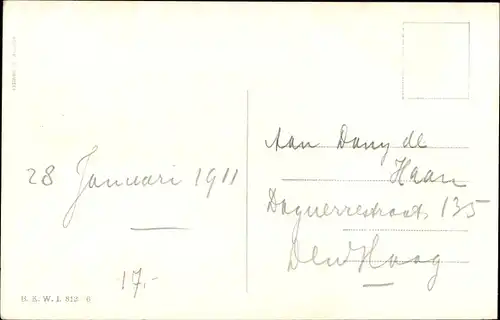 28 Januari 1911
17.-
Aan Dany de
Haan
Daguerrestraat 135
Den Haag
B. K. W. I. 812 6